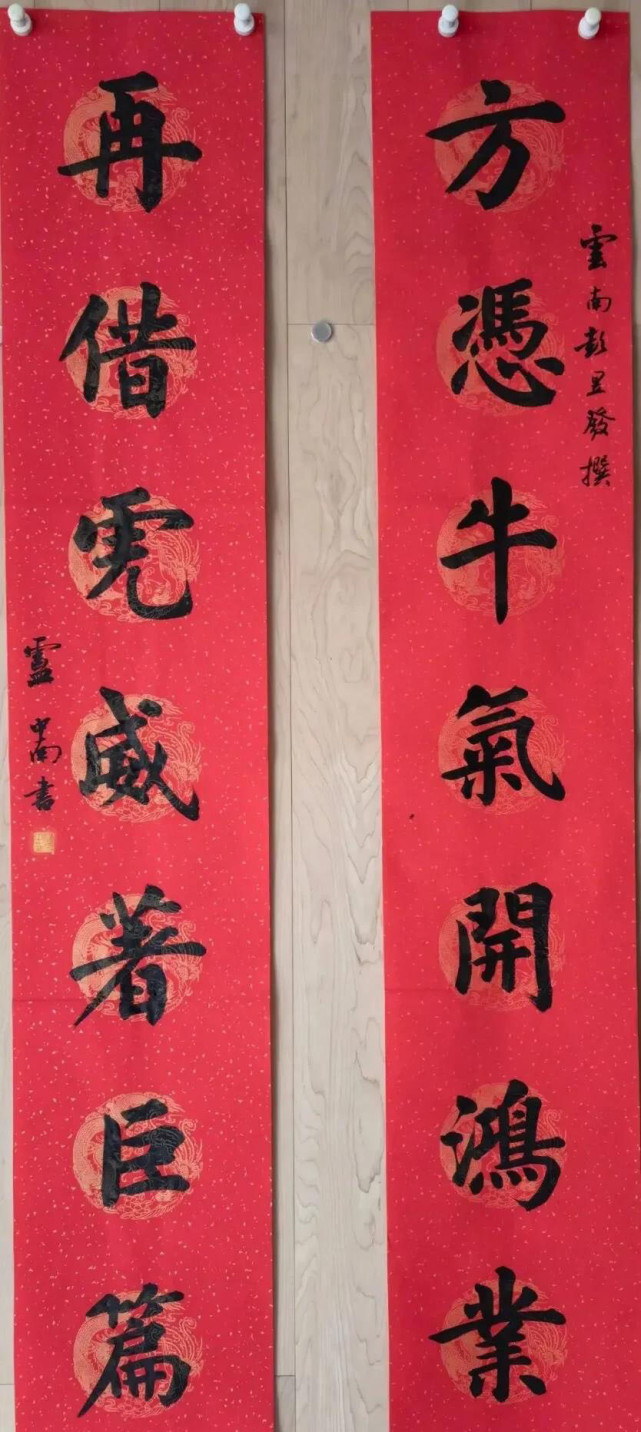 方憑牛氣開鴻業
雲南彭昱發撰
再借虎威著巨篇
盧中南書